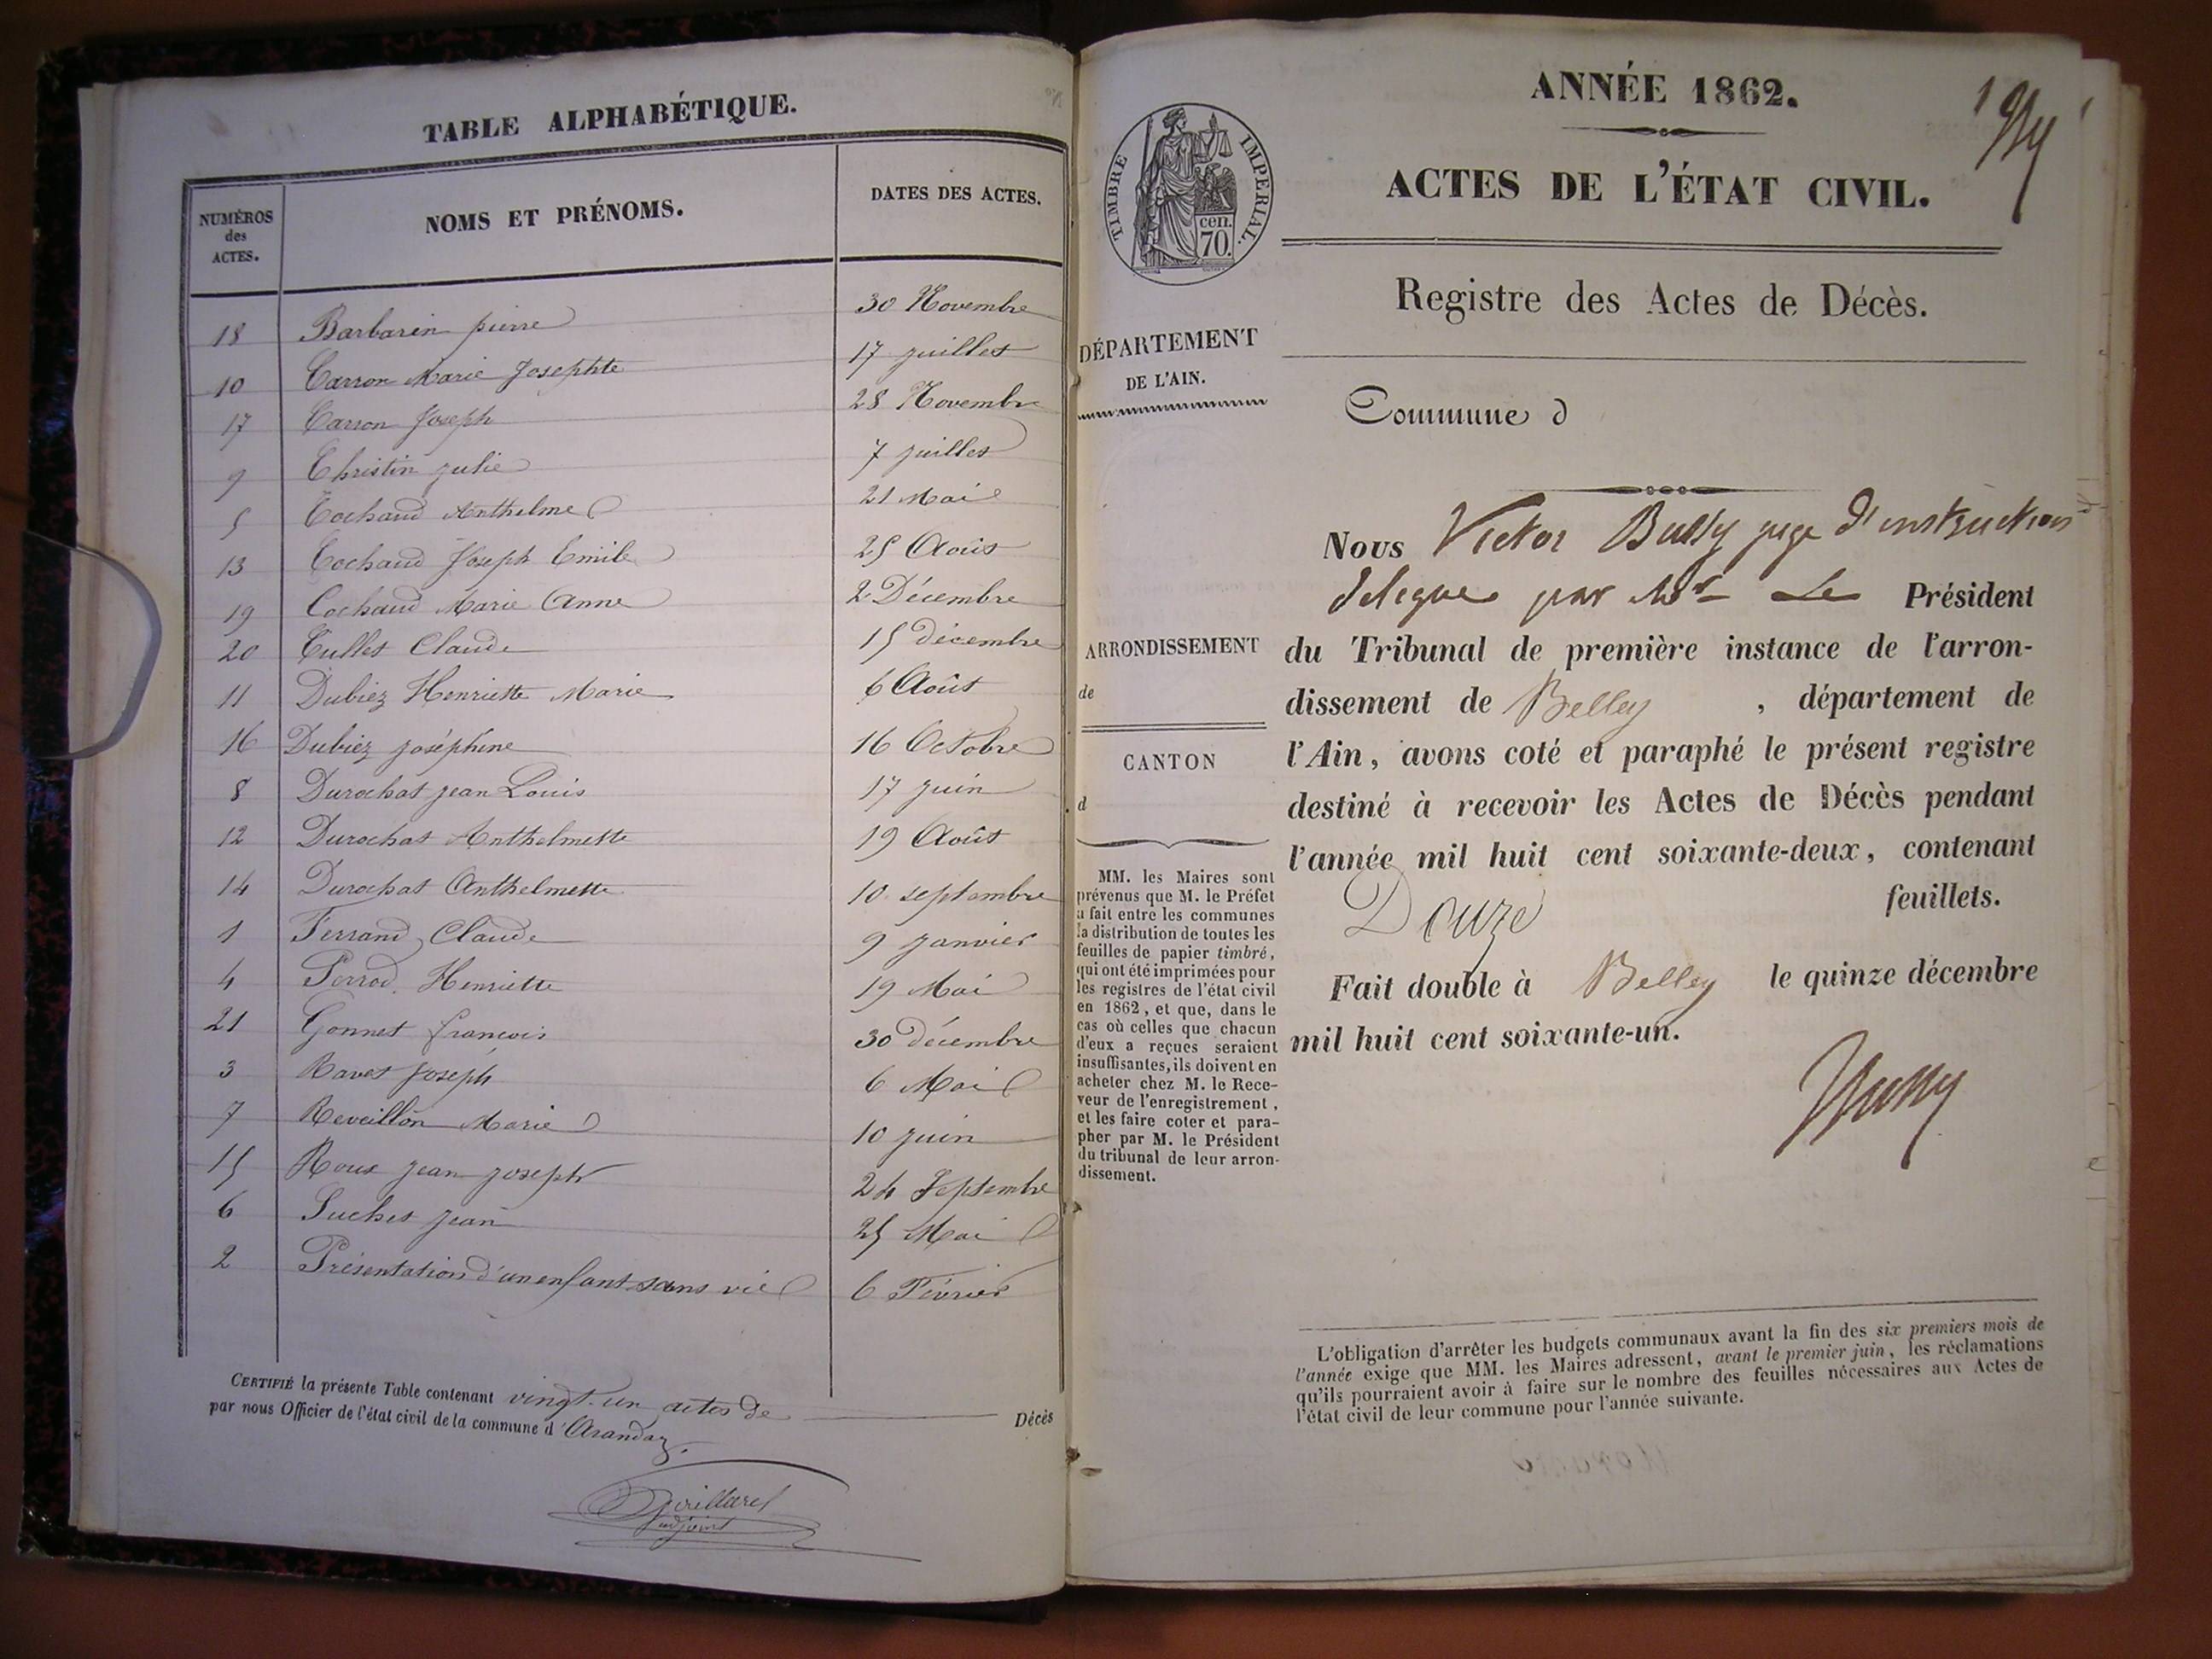 TABLE ALPHABÉTIQUE.
NUMÉROS des ACTES. NOMS ET PRÉNOMS. DATES DES ACTES.
18 Barbarin pierre 30 Novembre
10 Carron Marie Josephte 17 juillet
17 Carron Joseph 28 Novembre
9 Christin julie 7 juillet
5 Cochaud Anthelme 21 Mai
13 Cochaud Joseph Emile 25 Août
19 Cochaud Marie Anne 2 Décembre
20 Cullet Claude 15 décembre
11 Dubiez Henriette Marie 6 Août
16 Dubiez joséphine 16 Octobre
8 Durochat jean Louis 17 juin
12 Durochat Anthelmette 19 Août
14 Durochat Anthelmette 10 septembre
1 Ferrand Claude 9 janvier
4 Henriette 19 Mai
21 Gonnet françois 30 décembre
3 Ravet Joseph 6 Mai
7 Reveillon Marie 10 juin
15 Roux jean joseph 24 Septembre
6 Suchet jean 25 Mai
2 Présentation d'un enfant sans vie 6 Février
CERTIFIÉ la présente Table contenant vingt-un actes de Décès
par nous Officier de l'état civil de la commune d'Arandaz.
adjoint
ANNÉE 1862.
ACTES DE L'ÉTAT CIVIL.
TIMBRE IMPÉRIAL.
cen.
70.
Registre des Actes de Décès.
DÉPARTEMENT
DE L'AIN.
Commune d
ARRONDISSEMENT
de
CANTON
d
MM. les Maires sont
prévenus que M. le Préfet
a fait entre les communes
la distribution de toutes les
feuilles de papier timbré,
qui ont été imprimées pour
les registres de l'état civil
en 1862, et que, dans le
cas où celles que chacun
d'eux a reçues seraient
insuffisantes, ils doivent en
acheter chez M. le Rece-
veur de l'enregistrement,
et les faire coter et para-
pher par M. le Président
du tribunal de leur arron-
dissement.
Nous Victor Bussy juge d'instruction
délégué par Mr Le Président
du Tribunal de première instance de l'arron-
dissement de Belley, département de
l'Ain, avons coté et paraphé le présent registre
destiné à recevoir les Actes de Décès pendant
l'année mil huit cent soixante-deux, contenant
Douze feuillets.
Fait double à Belley le quinze décembre
mil huit cent soixante-un.
Bussy
L'obligation d'arrêter les budgets communaux avant la fin des six premiers mois de
l'année exige que MM. les Maires adressent, avant le premier juin, les réclamations
qu'ils pourraient avoir à faire sur le nombre des feuilles nécessaires aux Actes de
l'état civil de leur commune pour l'année suivante.